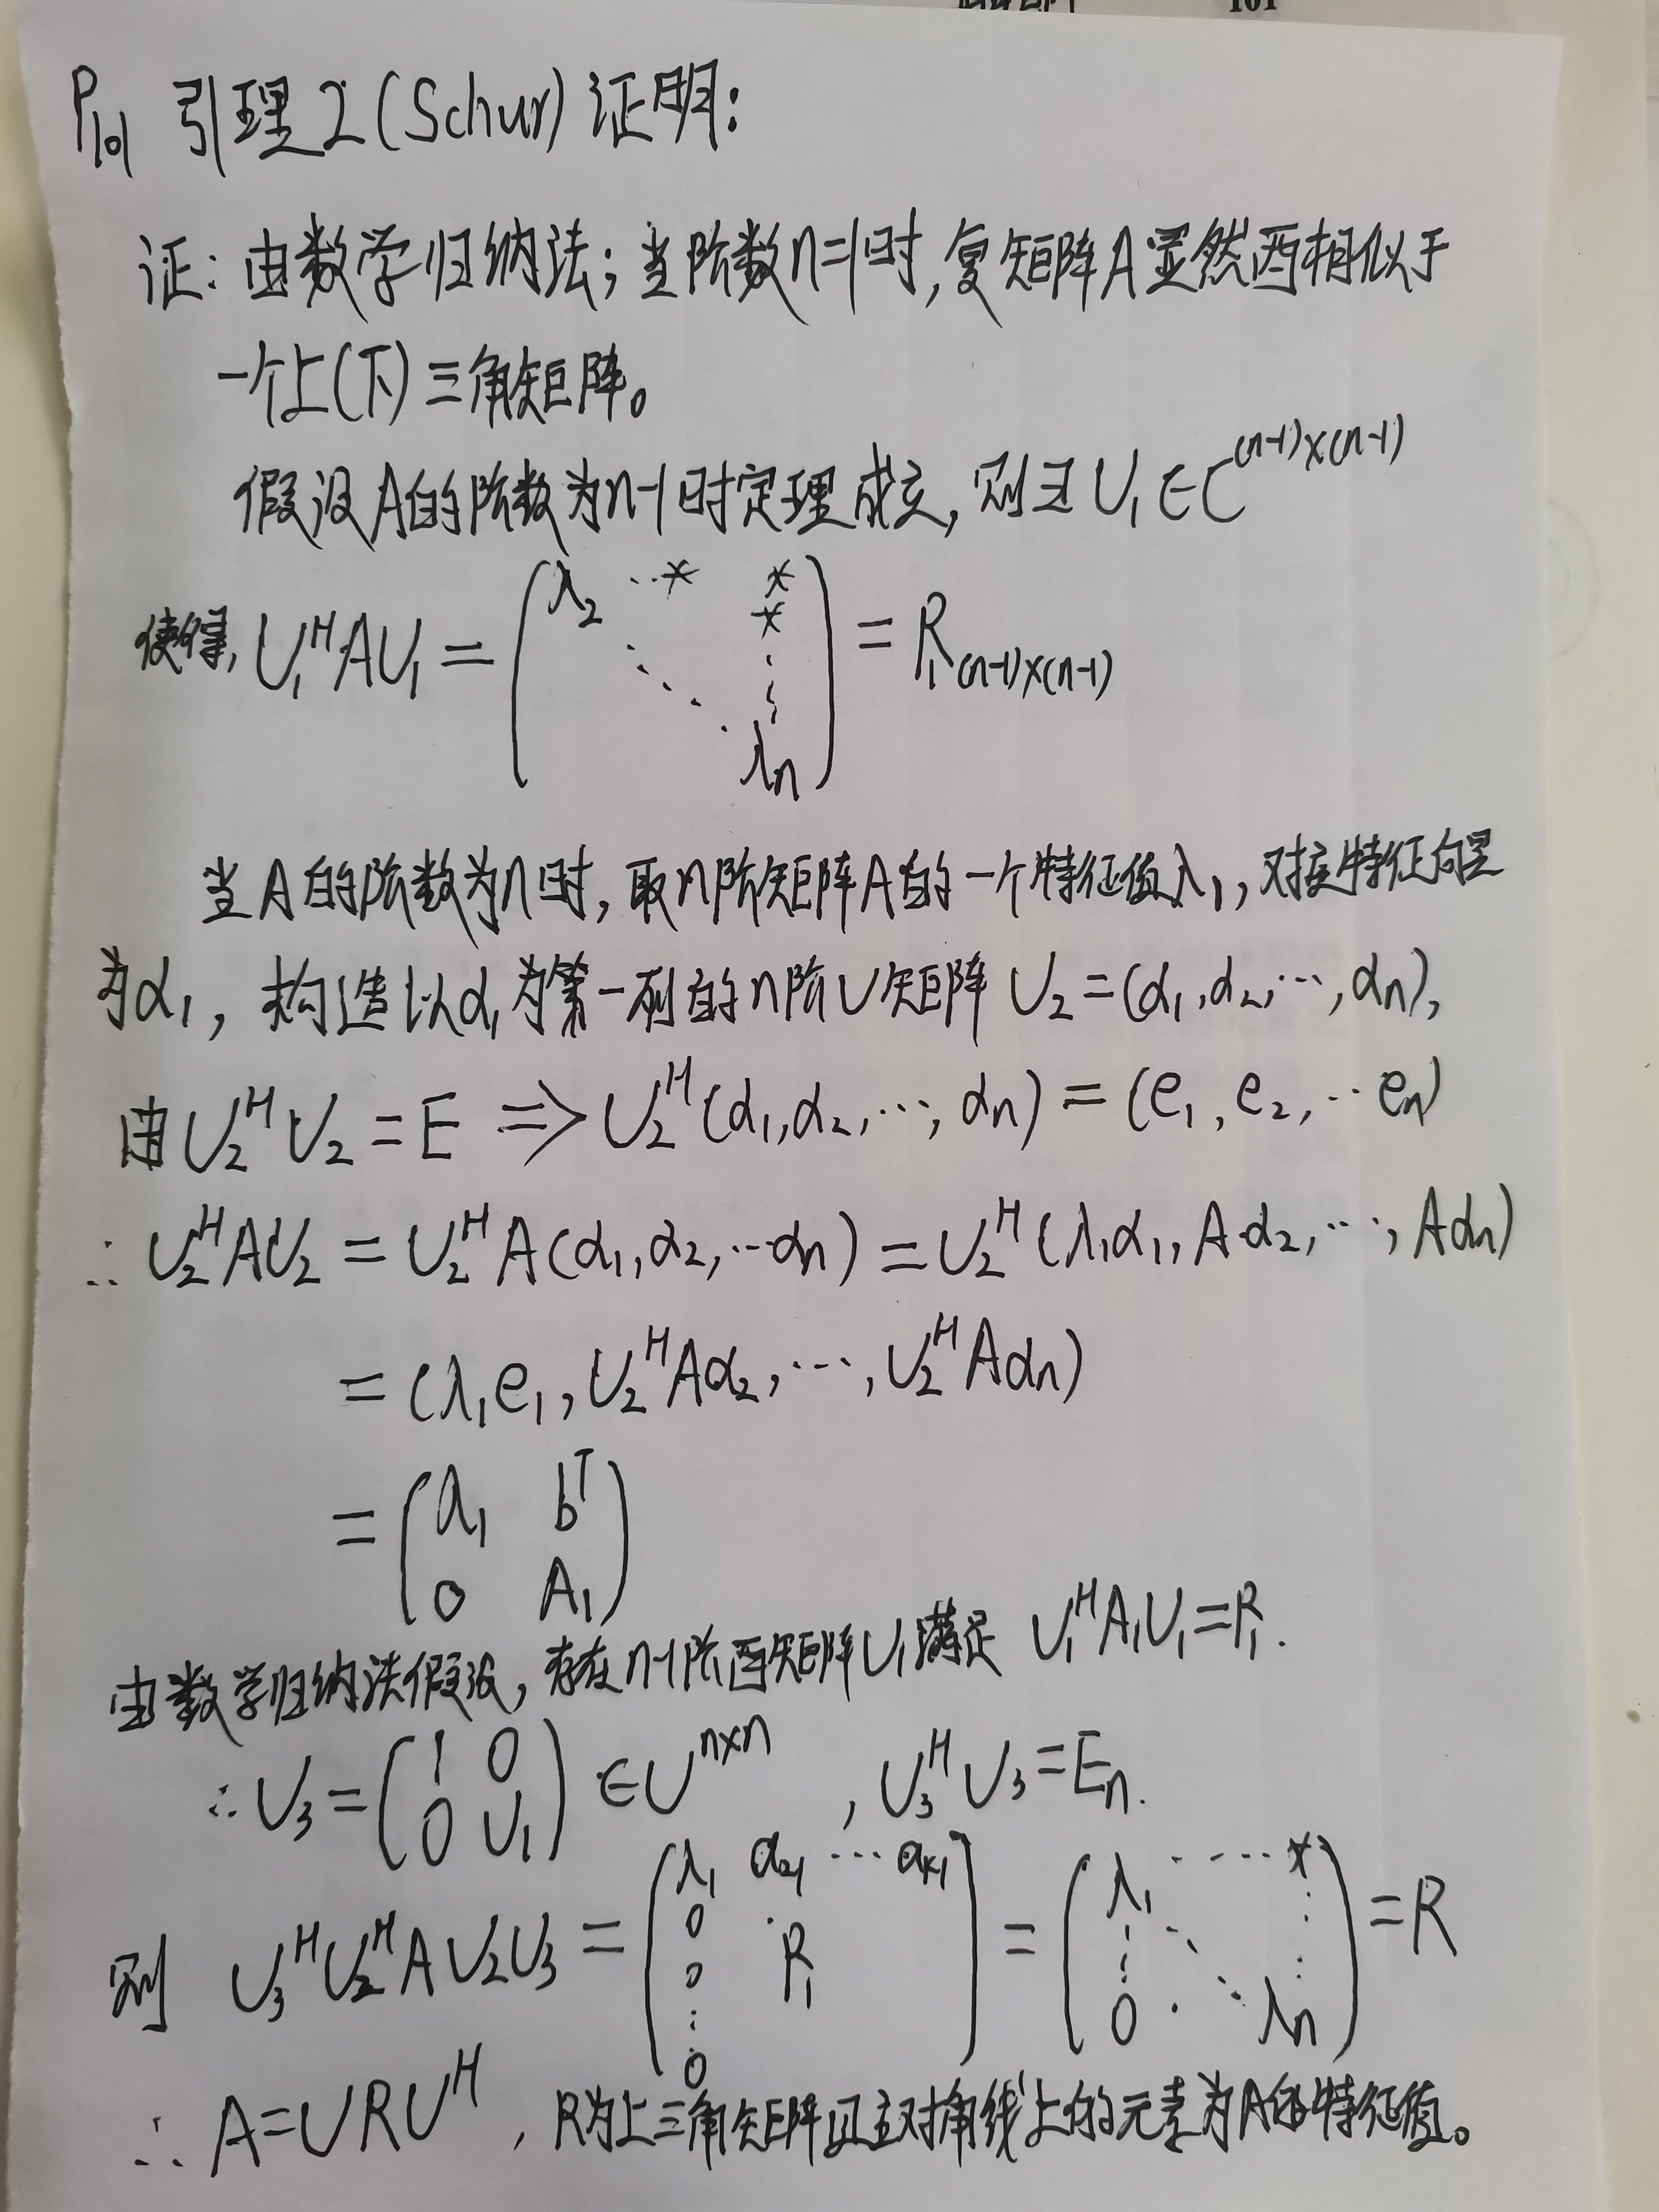 101
P101 引理2(Schur)证明:
证: 由数学归纳法; 当阶数n=1时, 复矩阵A显然酉相似于
一个上(下)三角矩阵。
假设A的阶数为n-1时定理成立, 则∃ U₁∈C^{(n-1)×(n-1)}
使得, U₁ᴴAU₁ = ( λ₂ ‥* * * ⋱ ⋮ λn ) = R₁ (n-1)×(n-1)
当A的阶数为n时, 取n阶矩阵A的一个特征值λ₁, 对应特征向量
为α₁, 构造以α₁为第一列的n阶U矩阵 U₂=(α₁,α₂,⋯,αn),
由 U₂ᴴU₂=E ⇒ U₂ᴴ(α₁,α₂,⋯,αn)=(e₁,e₂,‥en)
∴ U₂ᴴAU₂ = U₂ᴴA(α₁,α₂,⋯αn) = U₂ᴴ(λ₁α₁,A·α₂,⋯,Aαn)
= (λ₁e₁, U₂ᴴAα₂,⋯, U₂ᴴAαn)
= ( λ₁ bᵀ
0 A₁ )
由数学归纳法假设, 存在n-1阶酉矩阵U₁满足 U₁ᴴA₁U₁=R₁.
∴ U₃ = ( 1 0 0 U₁ ) ∈U^{n×n} , U₃ᴴU₃=En.
则 U₃ᴴU₂ᴴAU₂U₃ = ( λ₁ ⋯ 0 0 ⋮ 0 R₁ ) = ( λ₁ ⋯⋯ * ⋮ ⋱ ⋮ 0 λn ) = R
∴ A=URUᴴ, R为上三角矩阵且主对角线上的元素为A的特征值。